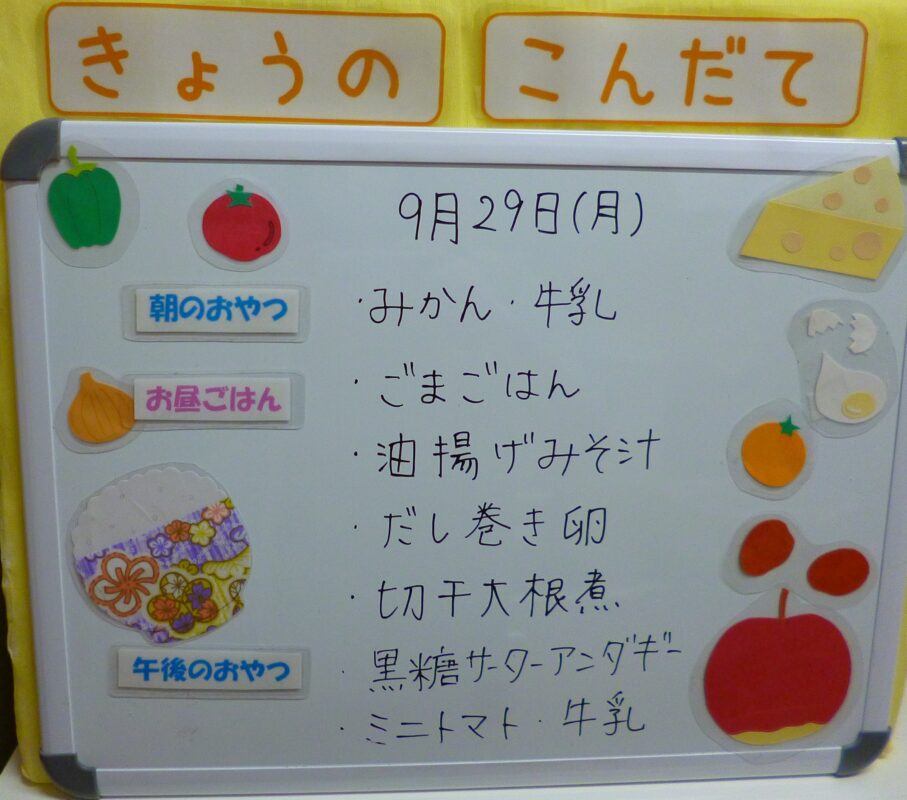 きょうの こんだて
9月29日(月)
朝のおやつ ・みかん・牛乳
お昼ごはん ・ごまごはん
・油揚げみそ汁
・だし巻き卵
・切干大根煮
午後のおやつ ・黒糖サーターアンダギー
・ミニトマト・牛乳